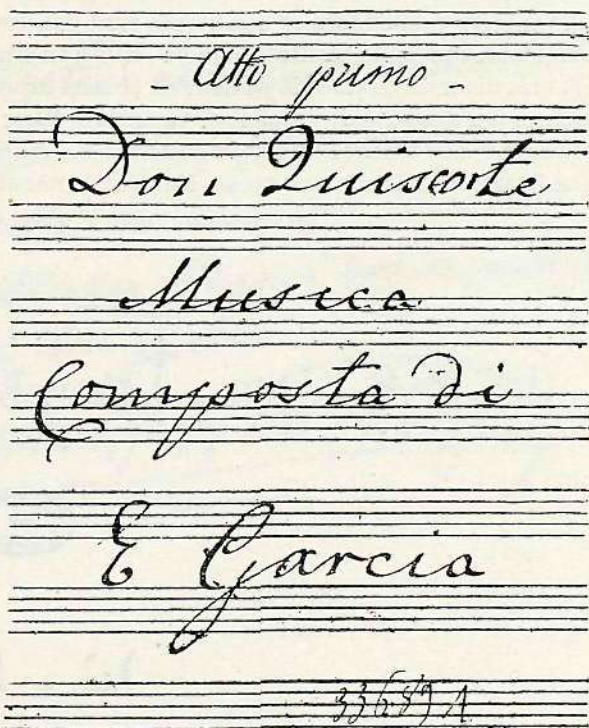 - Atto primo -
Don Quiscorte
Musica
Composta di
E Garcia
33689 A